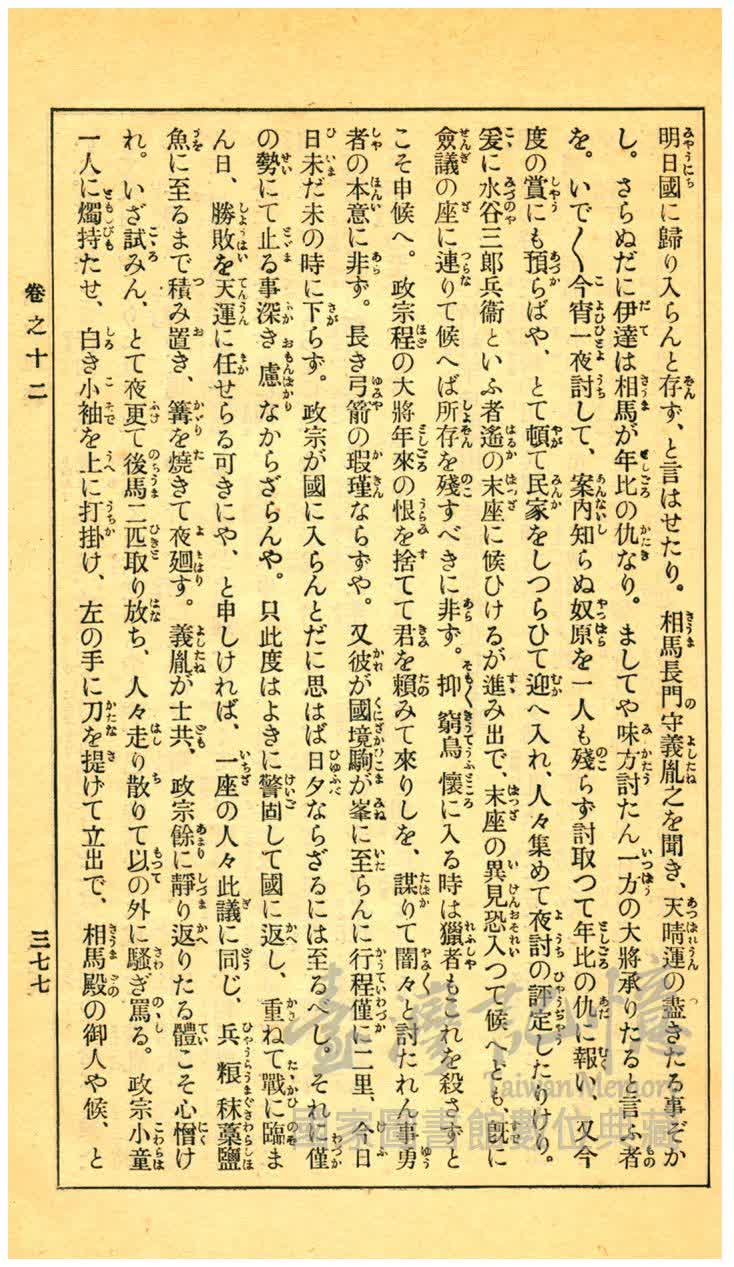 明日國に歸り入らんと存ず、と言はせたり。相馬長門守義胤之を聞き、天晴運の盡きたる事ぞか
し。さらぬだに伊達は相馬が年比の仇なり。ましてや味方討たん一方の大將承りたると言ふ者
を。いで〳〵今宵一夜討して、案内知らぬ奴原を一人も殘らず討取つて年比の仇に報い、又今
度の賞にも預らばや、とて頓て民家をしつらひて迎へ入れ、人々集めて夜討の評定したりけり。
爰に水谷三郎兵衞といふ者遙の末座に候ひけるが進み出で、末座の異見恐入つて候へども、既に
僉議の座に連りて候へば所存を殘すべきに非ず。抑窮鳥懷に入る時は獵者もこれを殺さずと
こそ申候へ。政宗程の大將年來の恨を捨てて君を賴みて來りしを、謀りて闇々と討たれん事勇
者の本意に非ず。長き弓箭の瑕瑾ならずや。又彼が國境駒が峯に至らんに行程僅に二里、今日
日未だ未の時に下らず。政宗が國に入らんとだに思はば日夕ならざるには至るべし。それに僅
の勢にて止る事深き慮なからざらんや。只此度はよきに警固して國に返し、重ねて戰に臨ま
ん日、勝敗を天運に任せらる可きにや、と申しければ、一座の人々此議に同じ、兵粮秣藁鹽
魚に至るまで積み置き、篝を燒きて夜廻す。義胤が士共、政宗餘に靜り返りたる體こそ心憎け
れ。いざ試みん、とて夜更て後馬二匹取り放ち、人々走り散りて以の外に騷ぎ罵る。政宗小童
一人に燭持たせ、白き小袖を上に打掛け、左の手に刀を提げて立出で、相馬殿の御人や候、と
卷之十二
三七七
臺灣記憶
Taiwan Memory
國家圖書館數位典藏